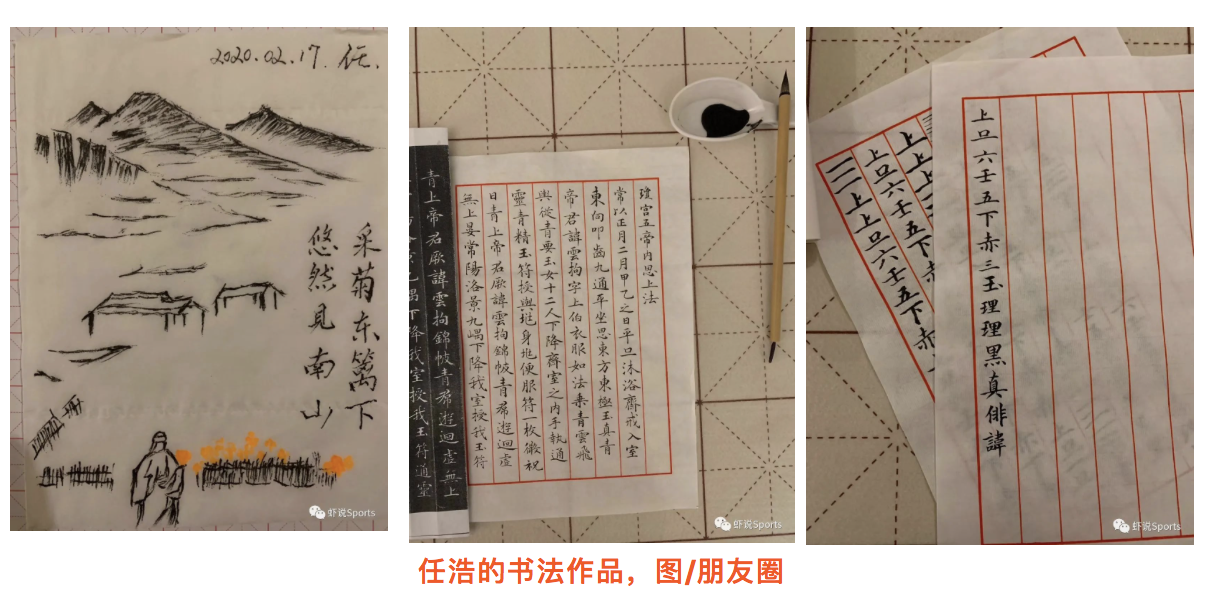 2020.02.17. 任.
采菊东篱下
悠然见南山
虾说Sports
瓊宫五帝内思上法
常以正月二月甲乙之日平旦沐浴齋戒入室
東向叩齒九通平坐思東方東極玉真青
帝君諱雲拘字上伯衣服如法乗青雲飛
輿從青要玉女十二人下降齋室之内手執通
靈青精玉符授與兆身兆便服符一枚微祝
日青上帝君厥諱雲拘錦帔青帬遊迴虚
無上晏常陽洛景九嵎下降我室授我玉符
青上帝君厥諱雲拘錦帔青帬遊迴虚無上
下降我室授我玉符通靈
虾说Sports
上旦六壬五下赤三玉理理黑真俳諱
上上上
上旦六壬五下赤
三二上上旦六壬五下赤
虾说Sports
任浩的书法作品，图/朋友圈